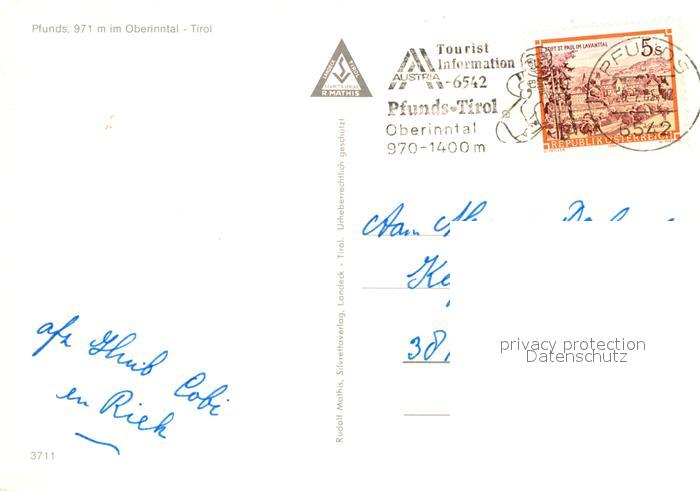 Pfunds, 971 m im Oberinntal - Tirol
R. MATHIS
Tourist
Information
AUSTRIA -6542
Pfunds-Tirol
Oberinntal
970-1400m
STIFT ST. PAUL IM LAVANTTAL
5s
REPUBLIK ÖSTERREICH
PFUNDS
6542
Rudolf Mathis, Silvrettaverlag, Landeck - Tirol. Urheberrechtlich geschützt!
Aan
Ke
38
privacy protection
Datenschutz
afz
Cobi
en Riek
3711